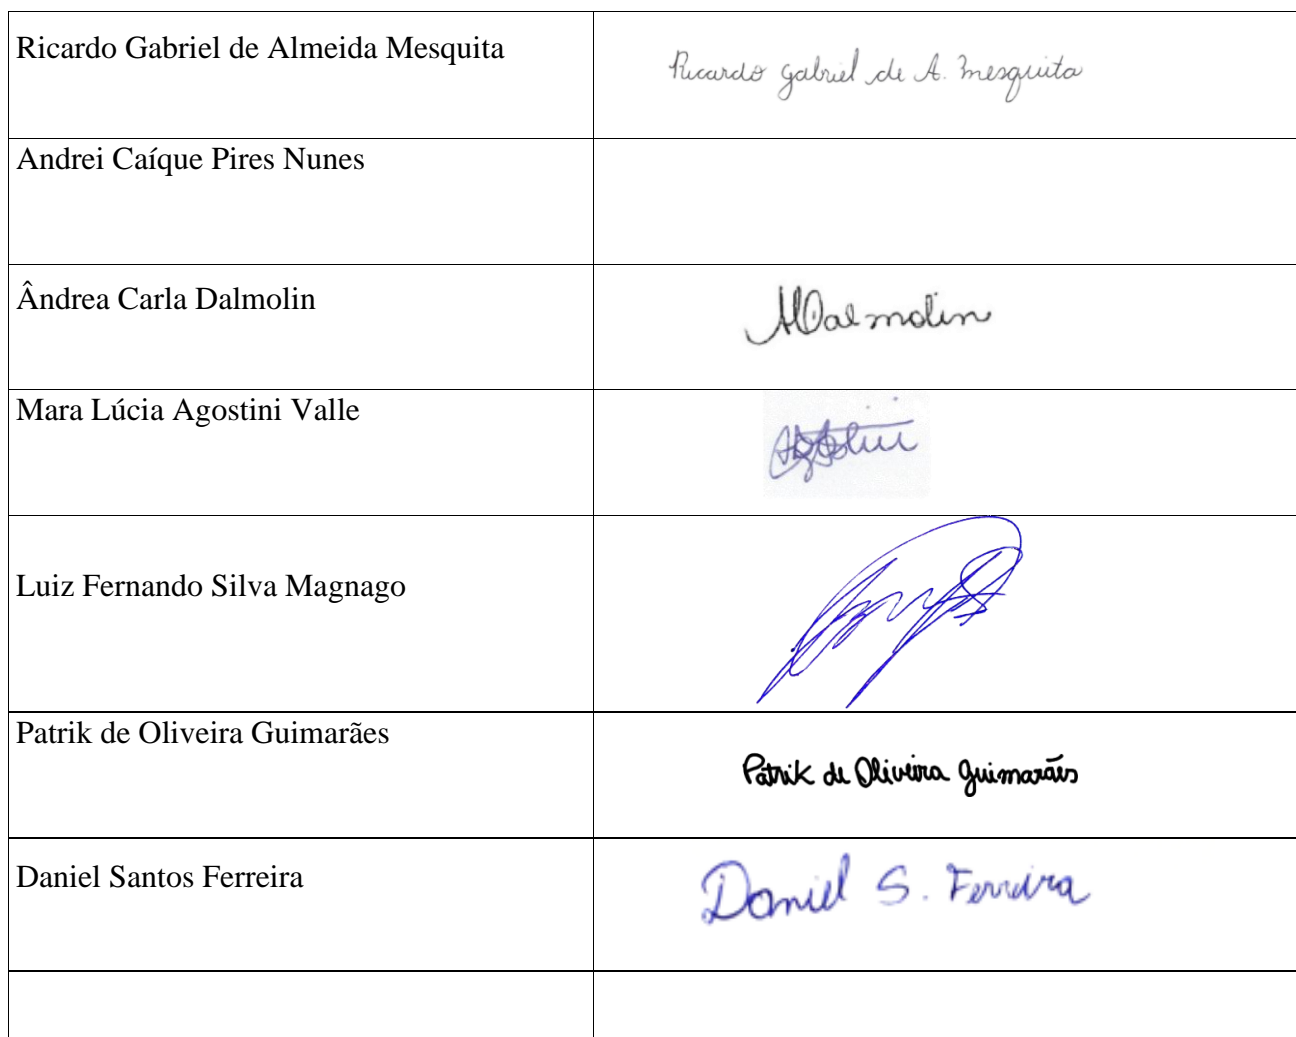 Ricardo Gabriel de Almeida Mesquita
Ricardo Gabriel de A. Mesquita
Andrei Caíque Pires Nunes
Ândrea Carla Dalmolin
ACDalmolin
Mara Lúcia Agostini Valle
Agostini
Luiz Fernando Silva Magnago
Patrik de Oliveira Guimarães
Patrik de Oliveira Guimarães
Daniel Santos Ferreira
Daniel S. Ferreira